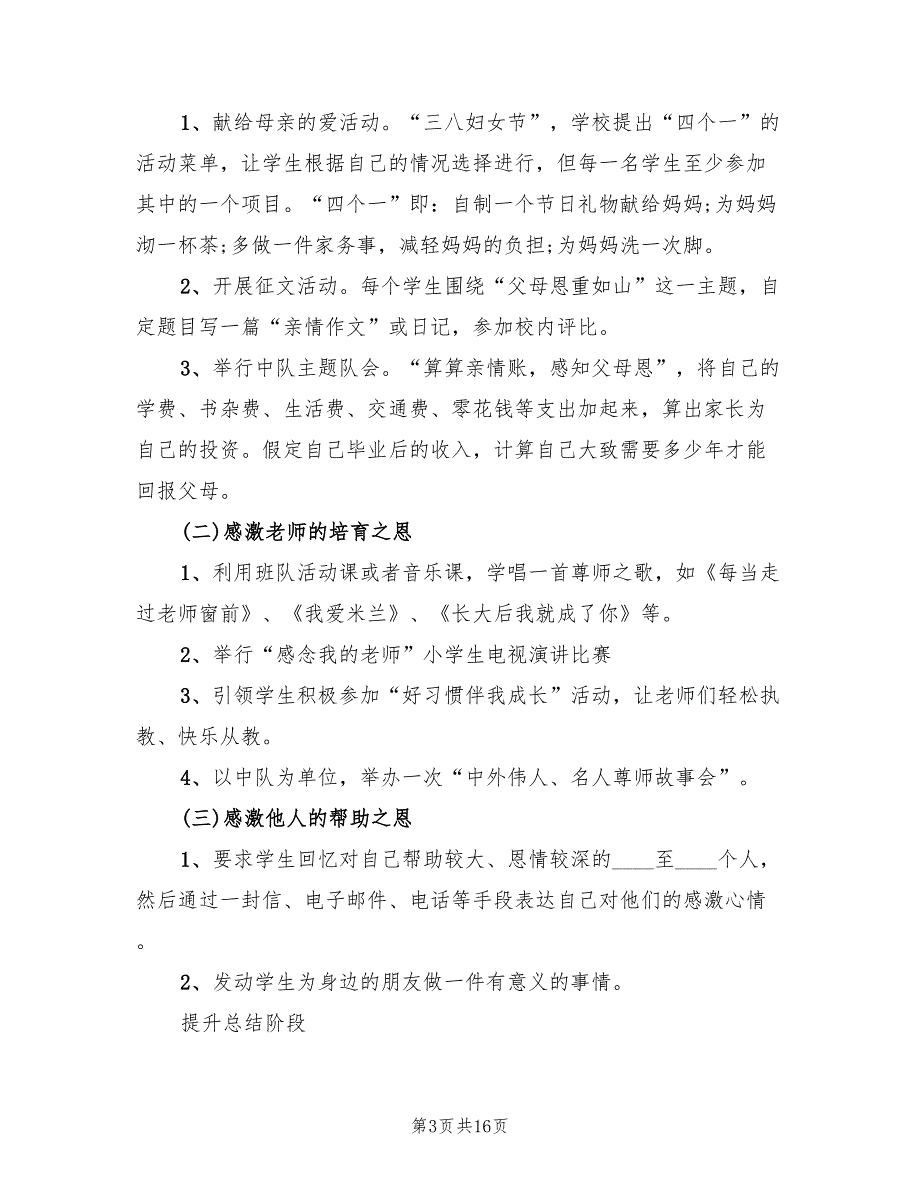 1、献给母亲的爱活动。“三八妇女节”，学校提出“四个一”的
活动菜单，让学生根据自己的情况选择进行，但每一名学生至少参加
其中的一个项目。“四个一”即：自制一个节日礼物献给妈妈;为妈妈
沏一杯茶;多做一件家务事，减轻妈妈的负担;为妈妈洗一次脚。
2、开展征文活动。每个学生围绕“父母恩重如山”这一主题，自
定题目写一篇“亲情作文”或日记，参加校内评比。
3、举行中队主题队会。“算算亲情账，感知父母恩”，将自己的
学费、书杂费、生活费、交通费、零花钱等支出加起来，算出家长为
自己的投资。假定自己毕业后的收入，计算自己大致需要多少年才能
回报父母。
(二)感激老师的培育之恩
1、利用班队活动课或者音乐课，学唱一首尊师之歌，如《每当走
过老师窗前》、《我爱米兰》、《长大后我就成了你》等。
2、举行“感念我的老师”小学生电视演讲比赛
3、引领学生积极参加“好习惯伴我成长”活动，让老师们轻松执
教、快乐从教。
4、以中队为单位，举办一次“中外伟人、名人尊师故事会”。
(三)感激他人的帮助之恩
1、要求学生回忆对自己帮助较大、恩情较深的____至____个人，
然后通过一封信、电子邮件、电话等手段表达自己对他们的感激心情
。
2、发动学生为身边的朋友做一件有意义的事情。
提升总结阶段
第3页共16页